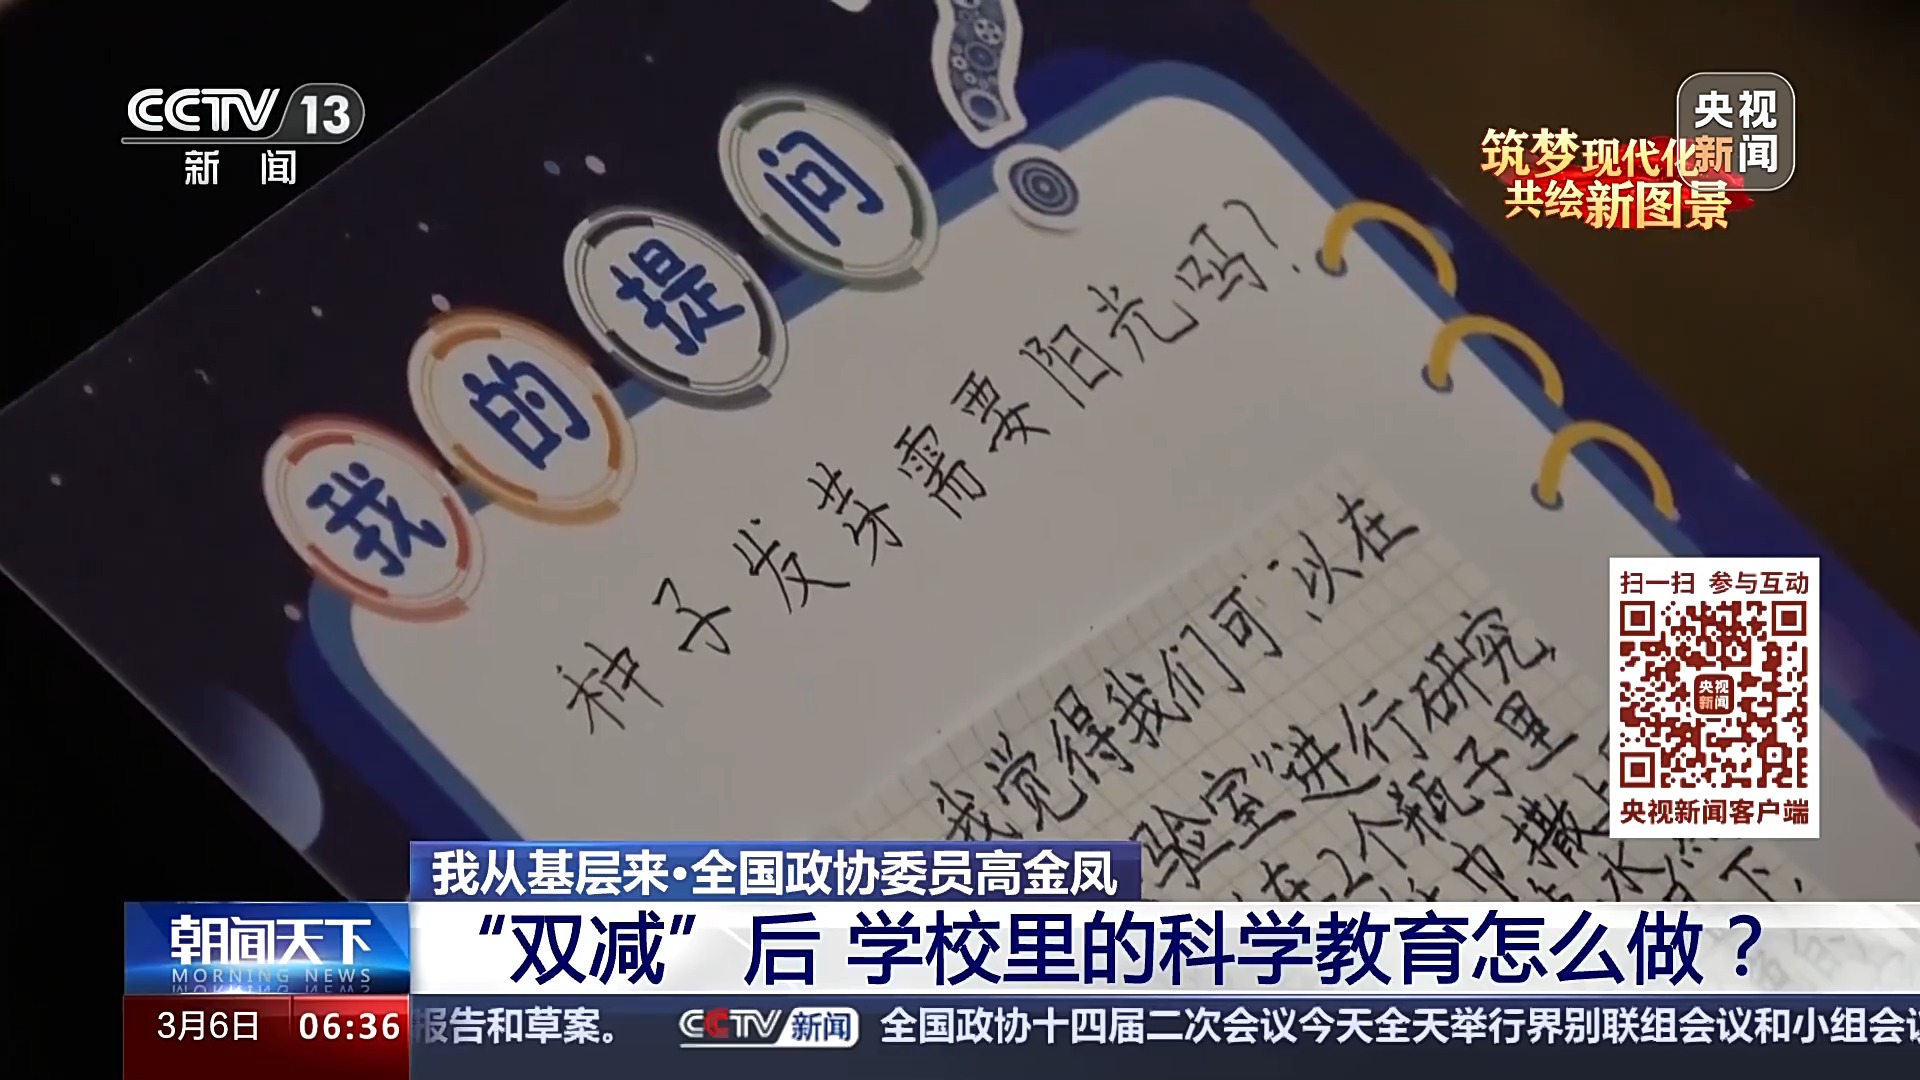 CCTV 13
新闻
央视
新闻
筑梦现代化
共绘新图景
我的提问
种子发芽需要阳光吗?
我觉得我们可以在
验室"进行研究,
在2个瓶子里
巾撒上
水
下,
扫一扫 参与互动
央视
新闻
央视新闻客户端
我从基层来·全国政协委员高金凤
“双减”后 学校里的科学教育怎么做?
朝闻天下
MORNING NEWS
3月6日
06:36
报告和草案。 CCTV新闻 全国政协十四届二次会议今天全天举行界别联组会议和小组会议